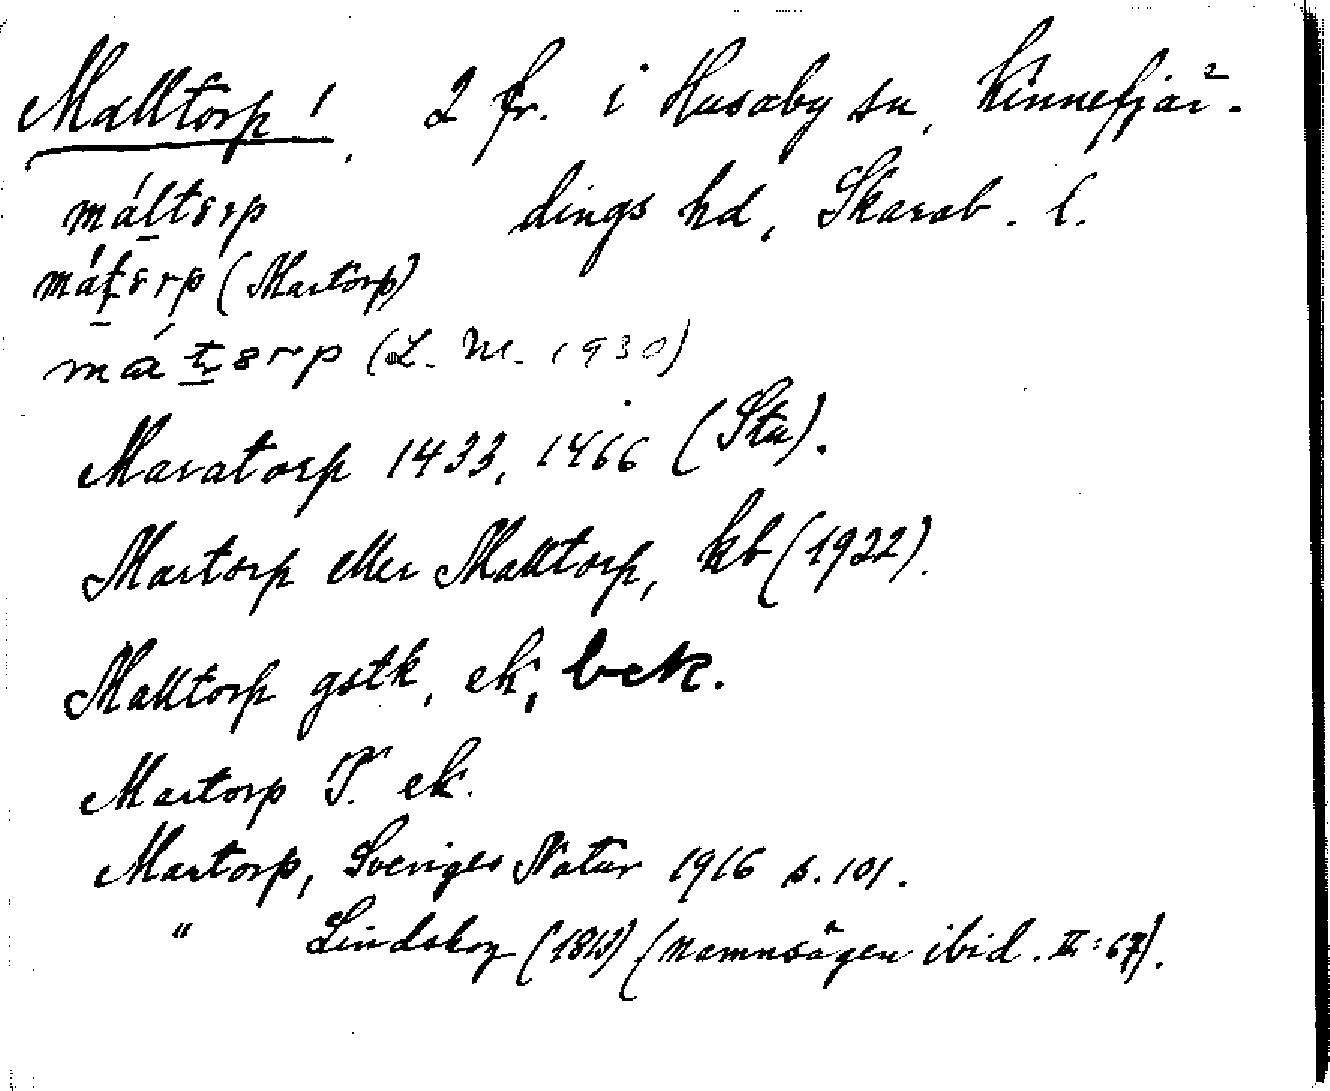 Malltorp! 2 fr. i Husaby sn, Kinnefjär-
máltorp dings hd, Skarab. l.
mátorp (Martorp)
mátorp (L. M. 1930)
Maratorp 1433, 1466 (Sta).
Martorp eller Malltorp, kb (1922).
Malltorp gstk, ek, bek.
Martorp T. ek.
Martorp, Sveriges Natur 1916 s. 101.
" Lindskog (namnsägen ibid. II: 67).